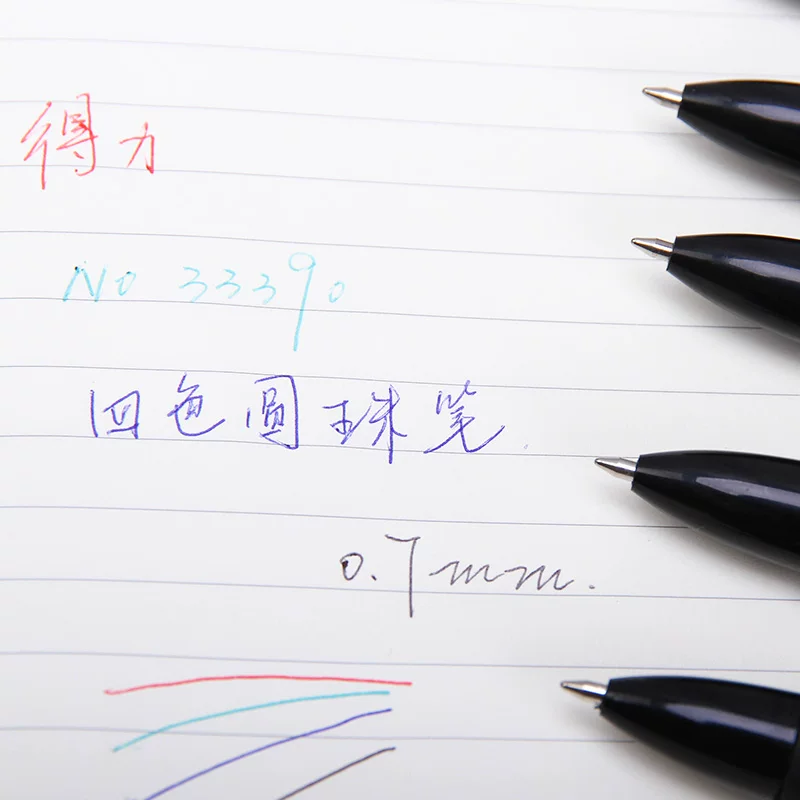 得力
NO 33390
四色圆珠笔
0.7mm.